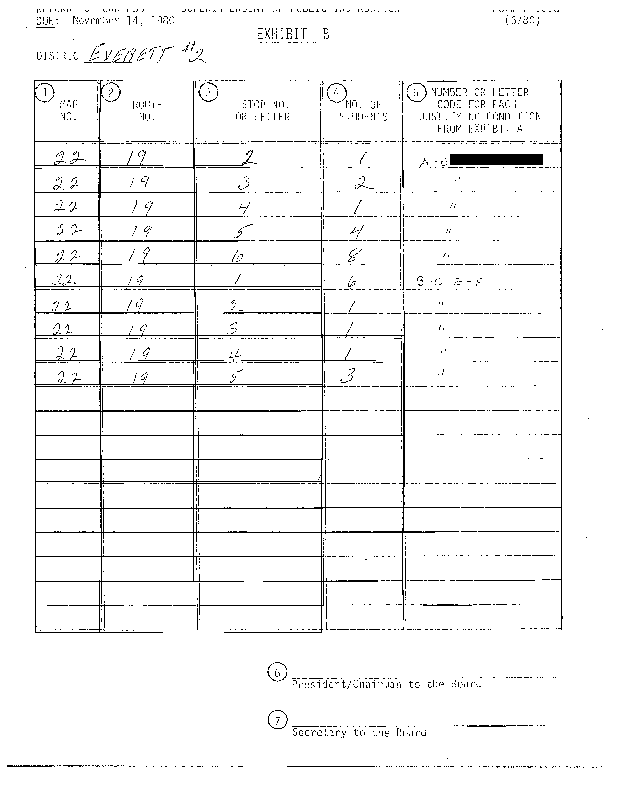 DUE: November 14, 1980 (6/80)
EXHIBIT B
DISTRICT EVERETT #2
1 2 3 4 5
MAP NO. ROUTE NO. STOP NO. OR LETTER NO. OF STUDENTS NUMBER OR LETTER CODE FOR EACH JUSTIFYING CONDITION FROM EXHIBIT A
22 19 2 1
22 19 3 2 "
22 19 4 1 "
22 19 5 4 "
22 19 6 8 "
22 19 1 6
22 19 2 1 "
22 19 3 1 "
22 19 4 1 "
22 19 5 3 "
6
President/Chairman to the Board
7
Secretary to the Board